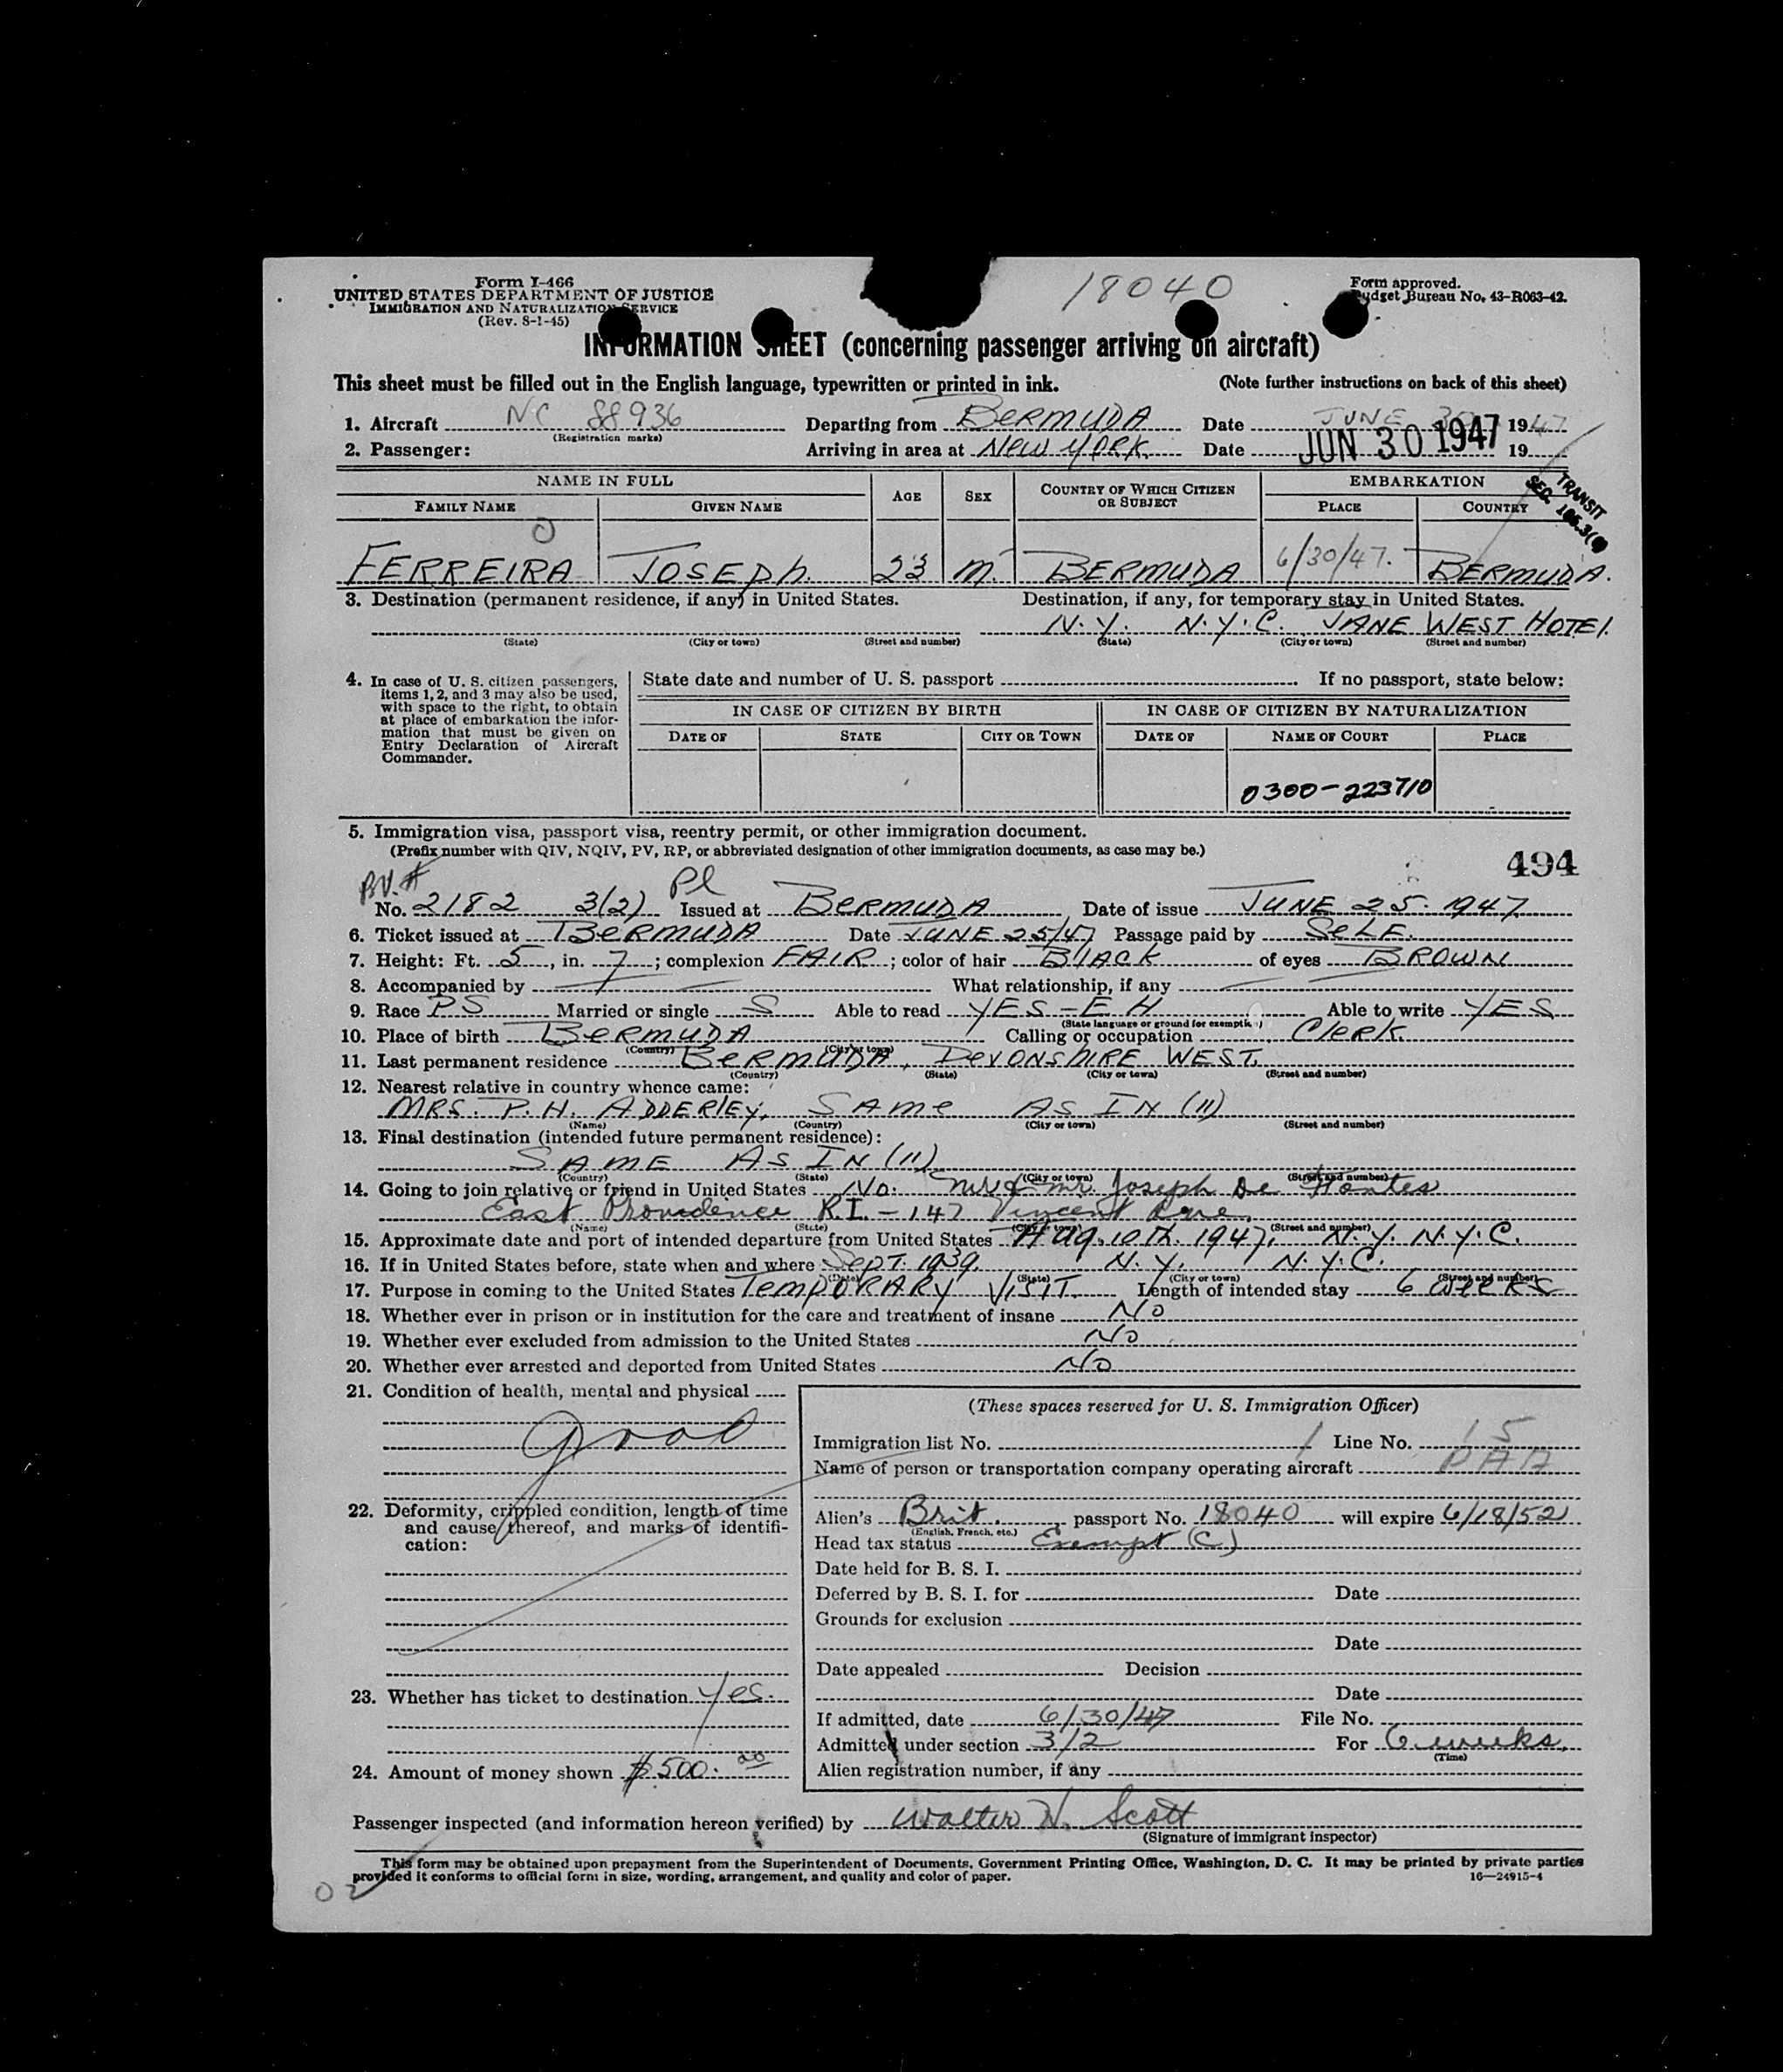 Form I-466
UNITED STATES DEPARTMENT OF JUSTICE
IMMIGRATION AND NATURALIZATION SERVICE
(Rev. 8-1-45)
18040
Form approved.
Budget Bureau No. 43-R063-42.
INFORMATION SHEET (concerning passenger arriving on aircraft)
This sheet must be filled out in the English language, typewritten or printed in ink. (Note further instructions on back of this sheet)
1. Aircraft NC 88936 Departing from BERMUDA Date JUNE 30 1947
(Registration marks)
2. Passenger: Arriving in area at NEW YORK. Date JUN 30 1947 19
NAME IN FULL AGE SEX COUNTRY OF WHICH CITIZEN OR SUBJECT EMBARKATION
FAMILY NAME GIVEN NAME PLACE COUNTRY
TRANSIT
SEC.
FERREIRA JOSEPh. 23 M. BERMUDA 6/30/47. BERMUDA.
3. Destination (permanent residence, if any) in United States. Destination, if any, for temporary stay in United States.
N.Y. N.Y.C. JANE WEST HOTEl.
(State) (City or town) (Street and number) (State) (City or town) (Street and number)
4. In case of U. S. citizen passengers, items 1, 2, and 3 may also be used, with space to the right, to obtain at place of embarkation the information that must be given on Entry Declaration of Aircraft Commander.
State date and number of U. S. passport If no passport, state below:
IN CASE OF CITIZEN BY BIRTH IN CASE OF CITIZEN BY NATURALIZATION
DATE OF STATE CITY OR TOWN DATE OF NAME OF COURT PLACE
0300-223710
5. Immigration visa, passport visa, reentry permit, or other immigration document.
(Prefix number with QIV, NQIV, PV, RP, or abbreviated designation of other immigration documents, as case may be.)
494
No. 2182 3(2) Pl Issued at BERMUDA Date of issue JUNE 25. 1947
6. Ticket issued at BERMUDA Date JUNE 25/47 Passage paid by SELF.
7. Height: Ft. 5, in. 7; complexion FAIR; color of hair BlACK of eyes BROWN
8. Accompanied by What relationship, if any
9. Race PS Married or single S Able to read YES-EH Able to write YES
(State language or ground for exemption)
10. Place of birth BERMUDA Calling or occupation Clerk.
(Country) (City or town)
11. Last permanent residence BERMUDA, DEVONSHIRE WEST.
(Country) (State) (City or town) (Street and number)
12. Nearest relative in country whence came:
MRS. P.H. ADDERlEy, SAME AS IN (11)
(Name) (Country) (City or town) (Street and number)
13. Final destination (intended future permanent residence):
SAME AS IN (11)
(Country) (State) (City or town) (Street and number)
14. Going to join relative or friend in United States No. Joseph De
East Providence R.I. - 147 Vincent
(Name) (State) (City or town) (Street and number)
15. Approximate date and port of intended departure from United States Aug. 10th. 1947, N.Y. N.Y.C.
16. If in United States before, state when and where SEPT. 1939. N.Y. N.Y.C.
(Date) (State) (City or town) (Street and number)
17. Purpose in coming to the United States TEMPORARY VISIT. Length of intended stay 6 weeks
18. Whether ever in prison or in institution for the care and treatment of insane No
19. Whether ever excluded from admission to the United States No
20. Whether ever arrested and deported from United States No
21. Condition of health, mental and physical
good
22. Deformity, crippled condition, length of time and cause thereof, and marks of identification:
23. Whether has ticket to destination Yes.
24. Amount of money shown $500.00
(These spaces reserved for U. S. Immigration Officer)
Immigration list No. 1 Line No. 15
Name of person or transportation company operating aircraft PAA
Alien's Brit. passport No. 18040 will expire 6/18/52
(English, French, etc.)
Head tax status Exempt (C)
Date held for B. S. I.
Deferred by B. S. I. for Date
Grounds for exclusion
Date
Date appealed Decision
Date
If admitted, date 6/30/47 File No.
Admitted under section 3/2 For 6 weeks.
(Time)
Alien registration number, if any
Passenger inspected (and information hereon verified) by Walter N. Scott
(Signature of immigrant inspector)
This form may be obtained upon prepayment from the Superintendent of Documents, Government Printing Office, Washington, D. C. It may be printed by private parties
provided it conforms to official form in size, wording, arrangement, and quality and color of paper. 16—24915-4
02